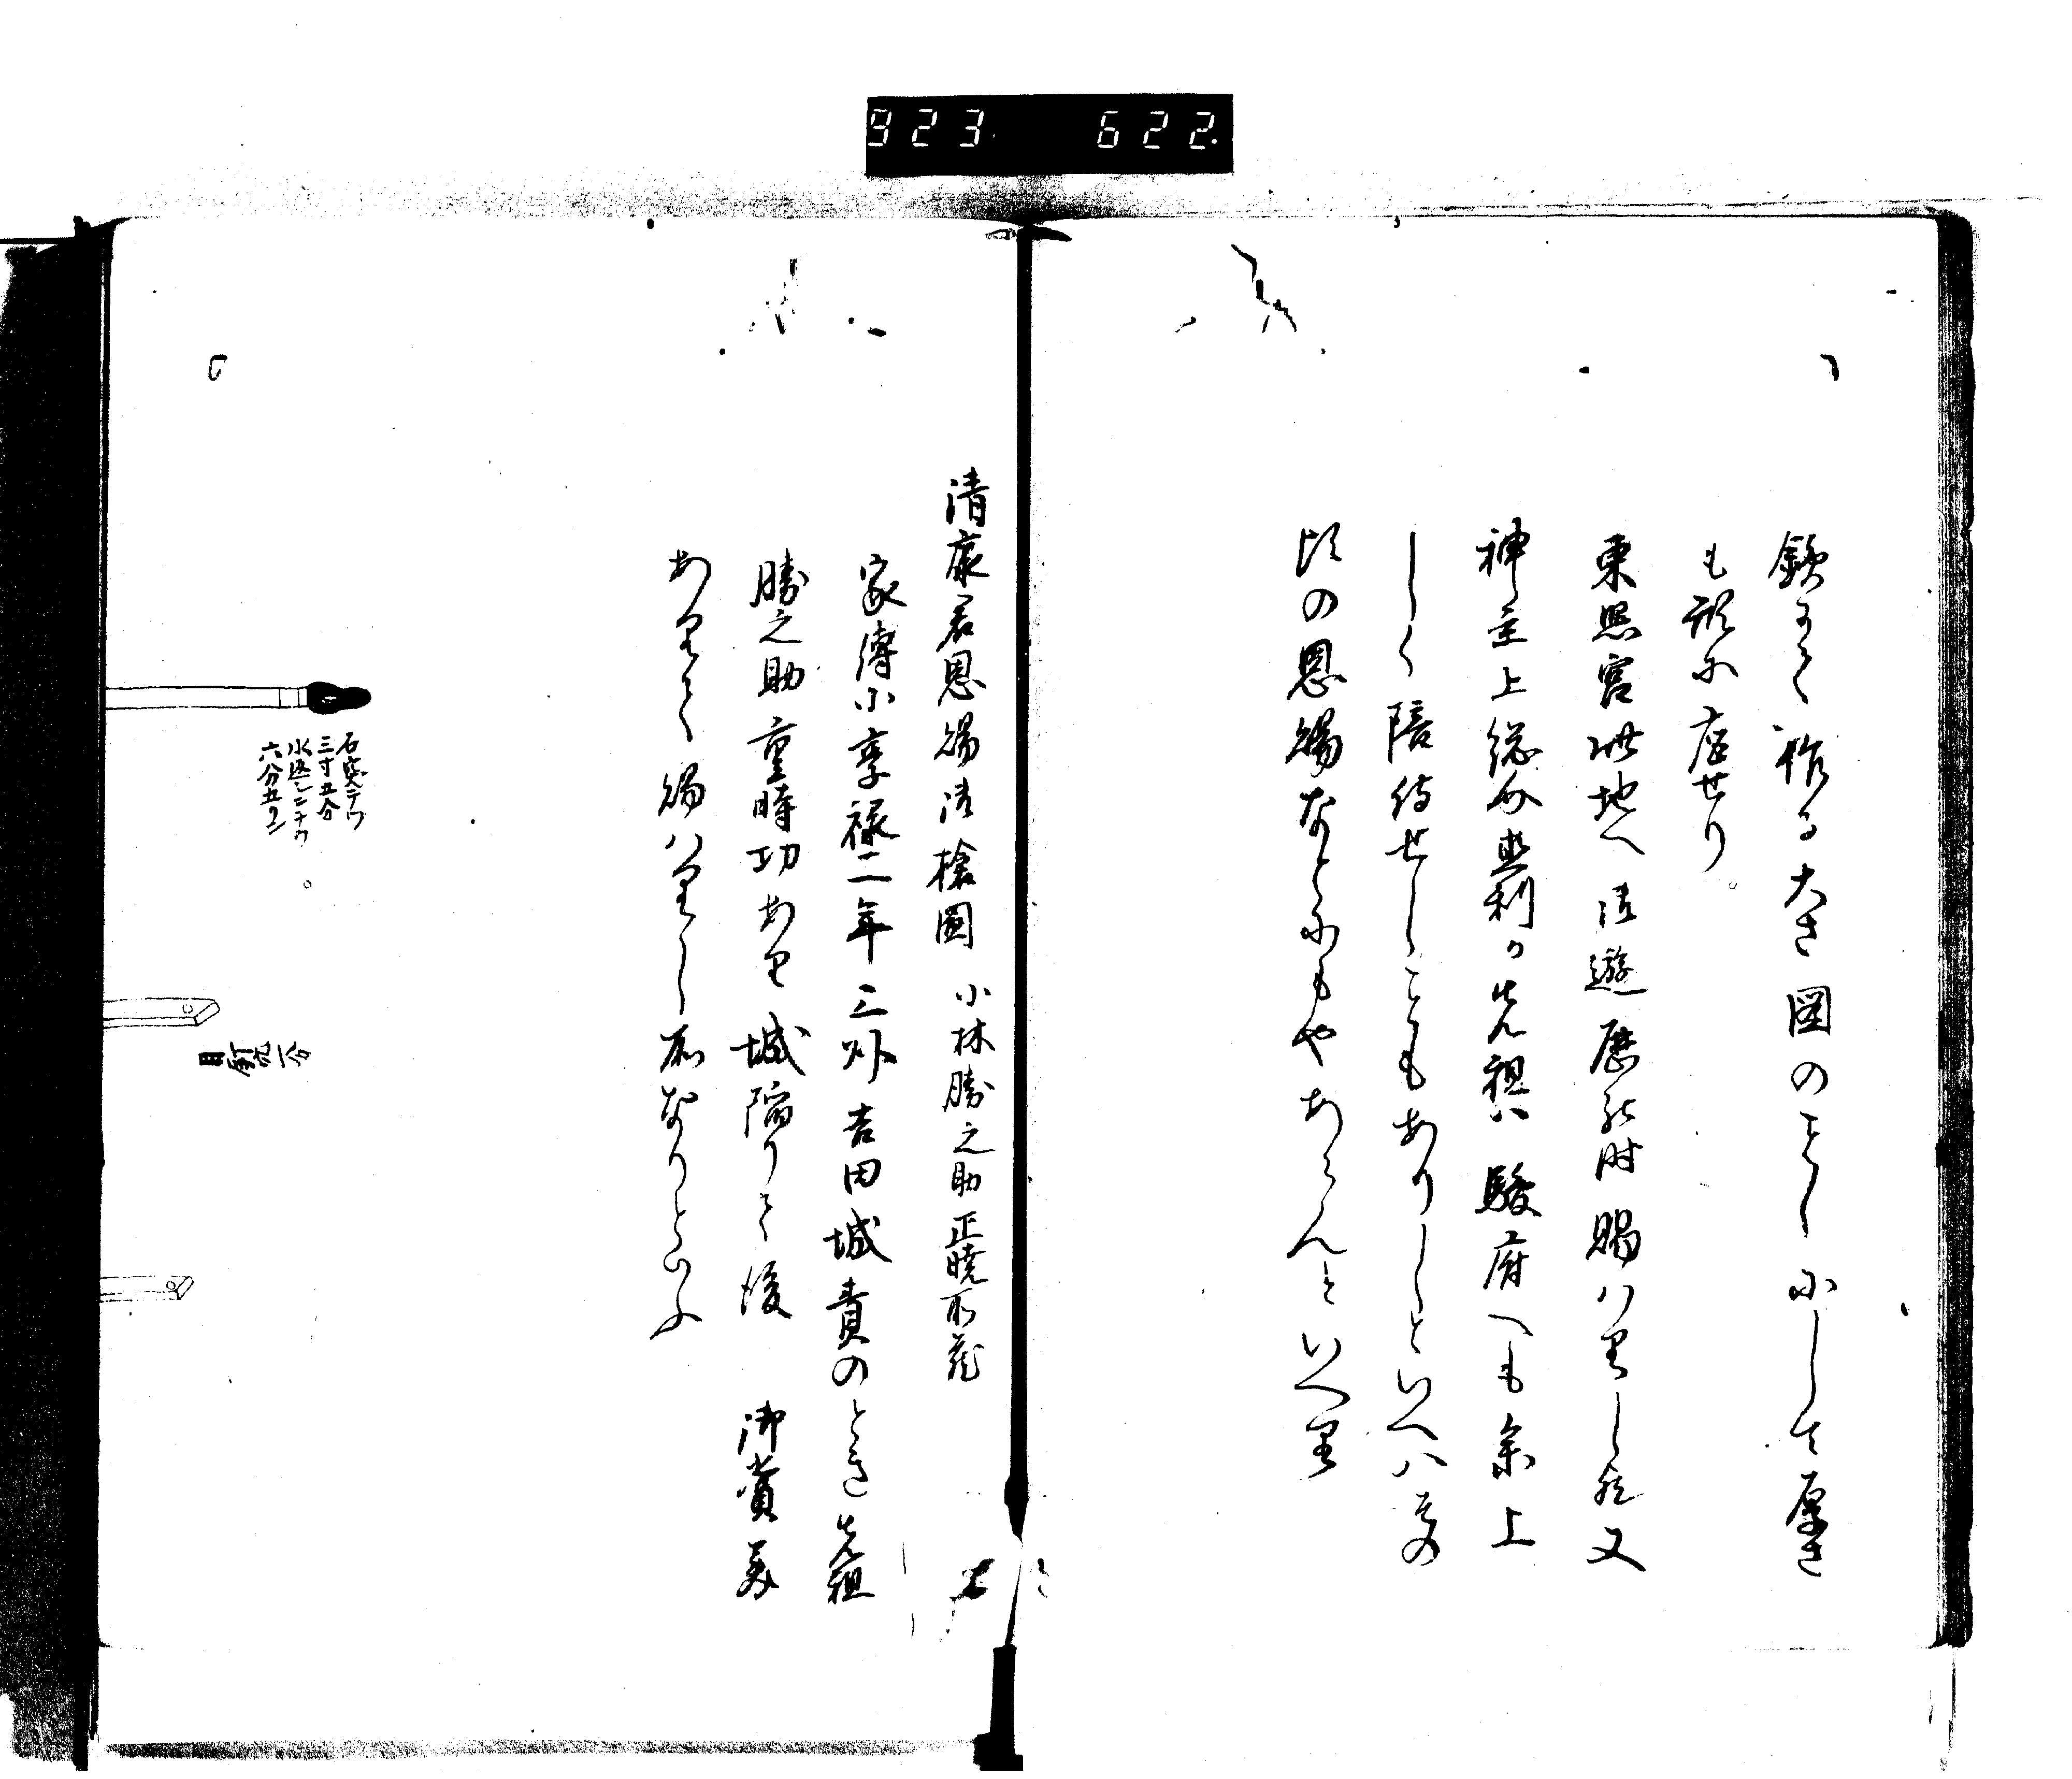 923 622
鉄にて作る大さ図のことくにして厚さ
も形に応せり
東照宮此地へ御遊歴の時賜ハりし然又
神主上総介典利か先祖ハ駿府へも参上
しく陪侍せしこともありしといへハその
比の恩賜なとにもやあらんといへり
清康君恩賜御槍図 小林勝之助正暁所蔵
家伝に享禄二年三州吉田城責のとき先祖
勝之助重時功あり城陥りて後 御賞美
ありて賜ハりし所なりといふ
石突テツ
三寸五分
水返シニナワ
六分五リン
目釘穴一分